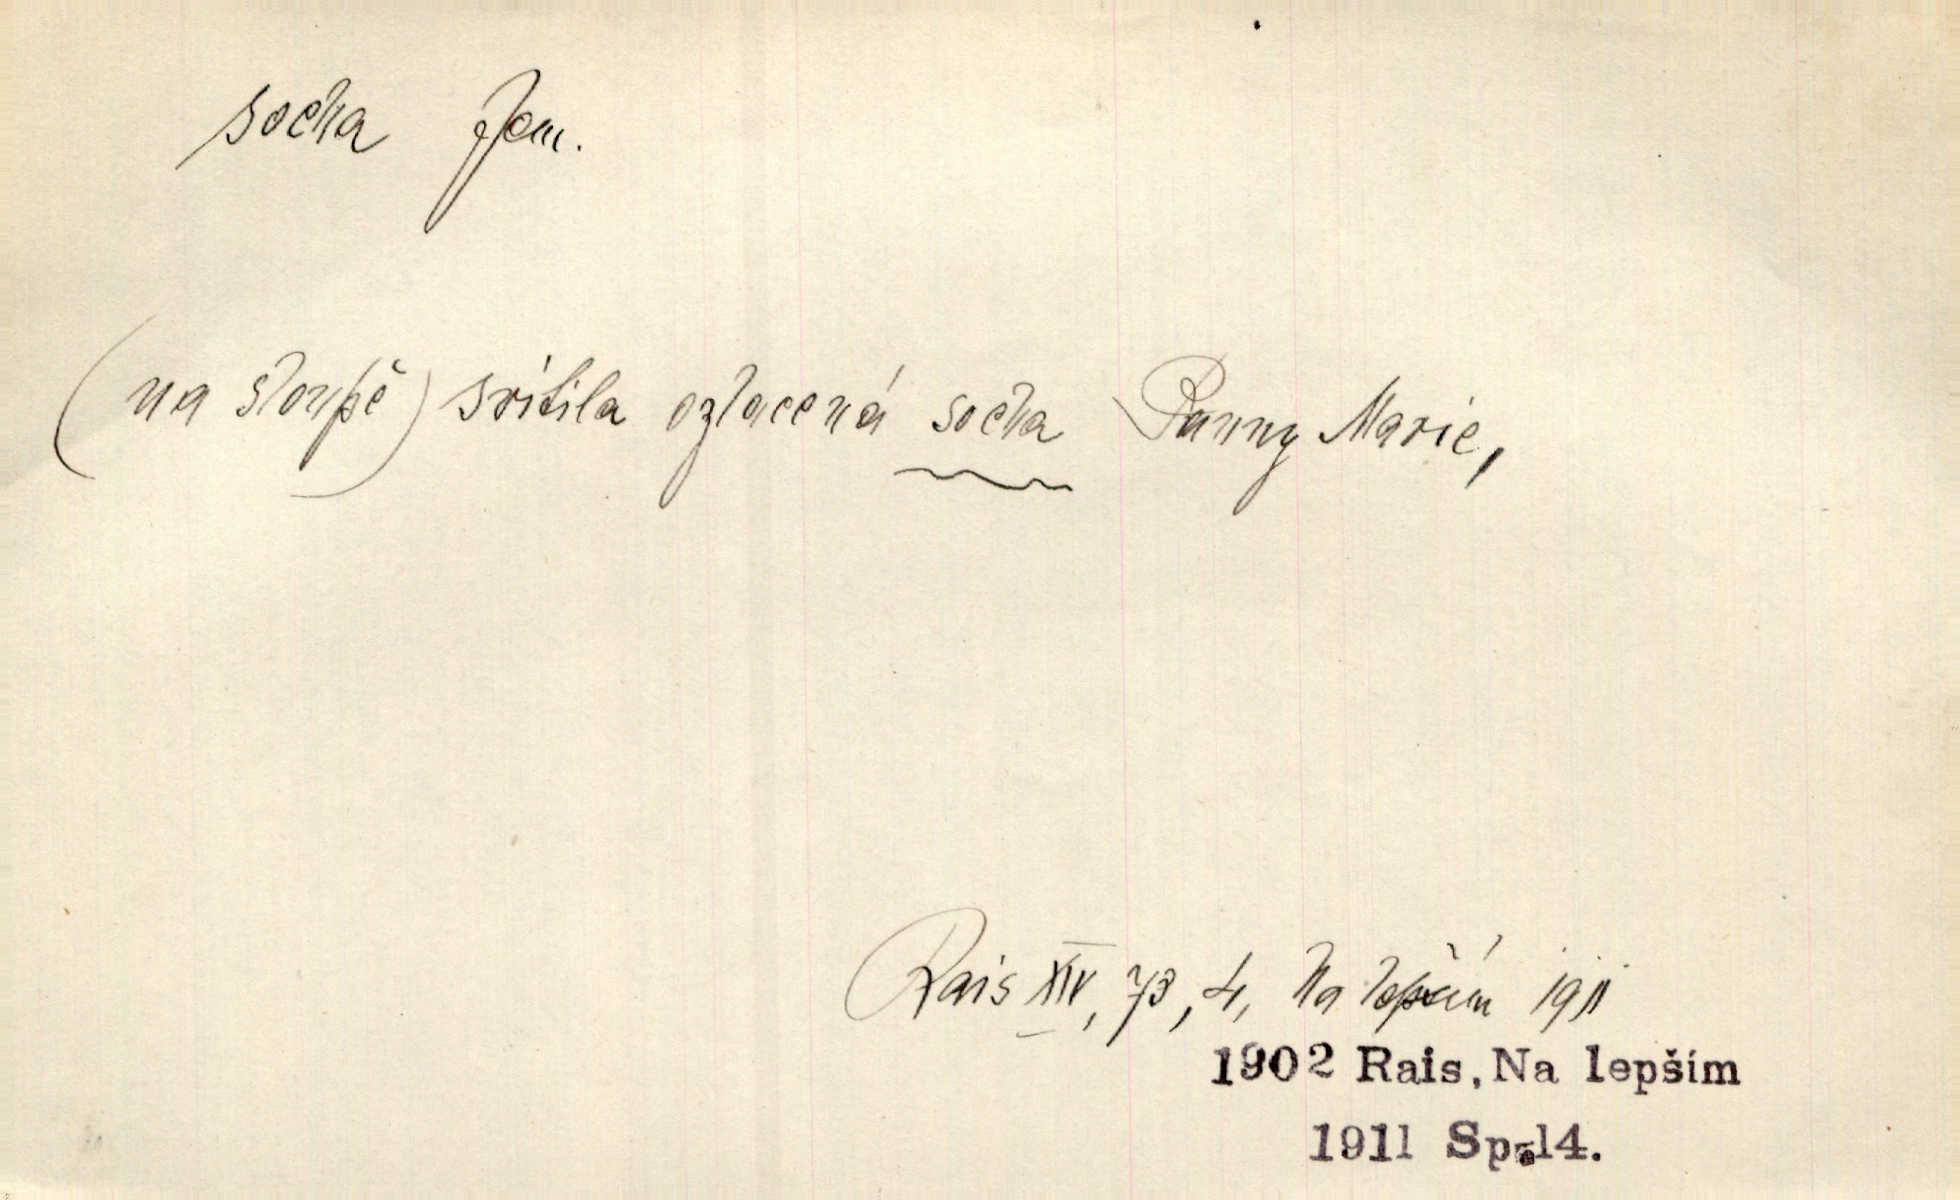 socha fem.
(na sloupě) svítila ozlacená socha Panny Marie,
Rais XIV, 73, 4, Na lepším 1911
1902 Rais, Na lepším
1911 Sp.14.